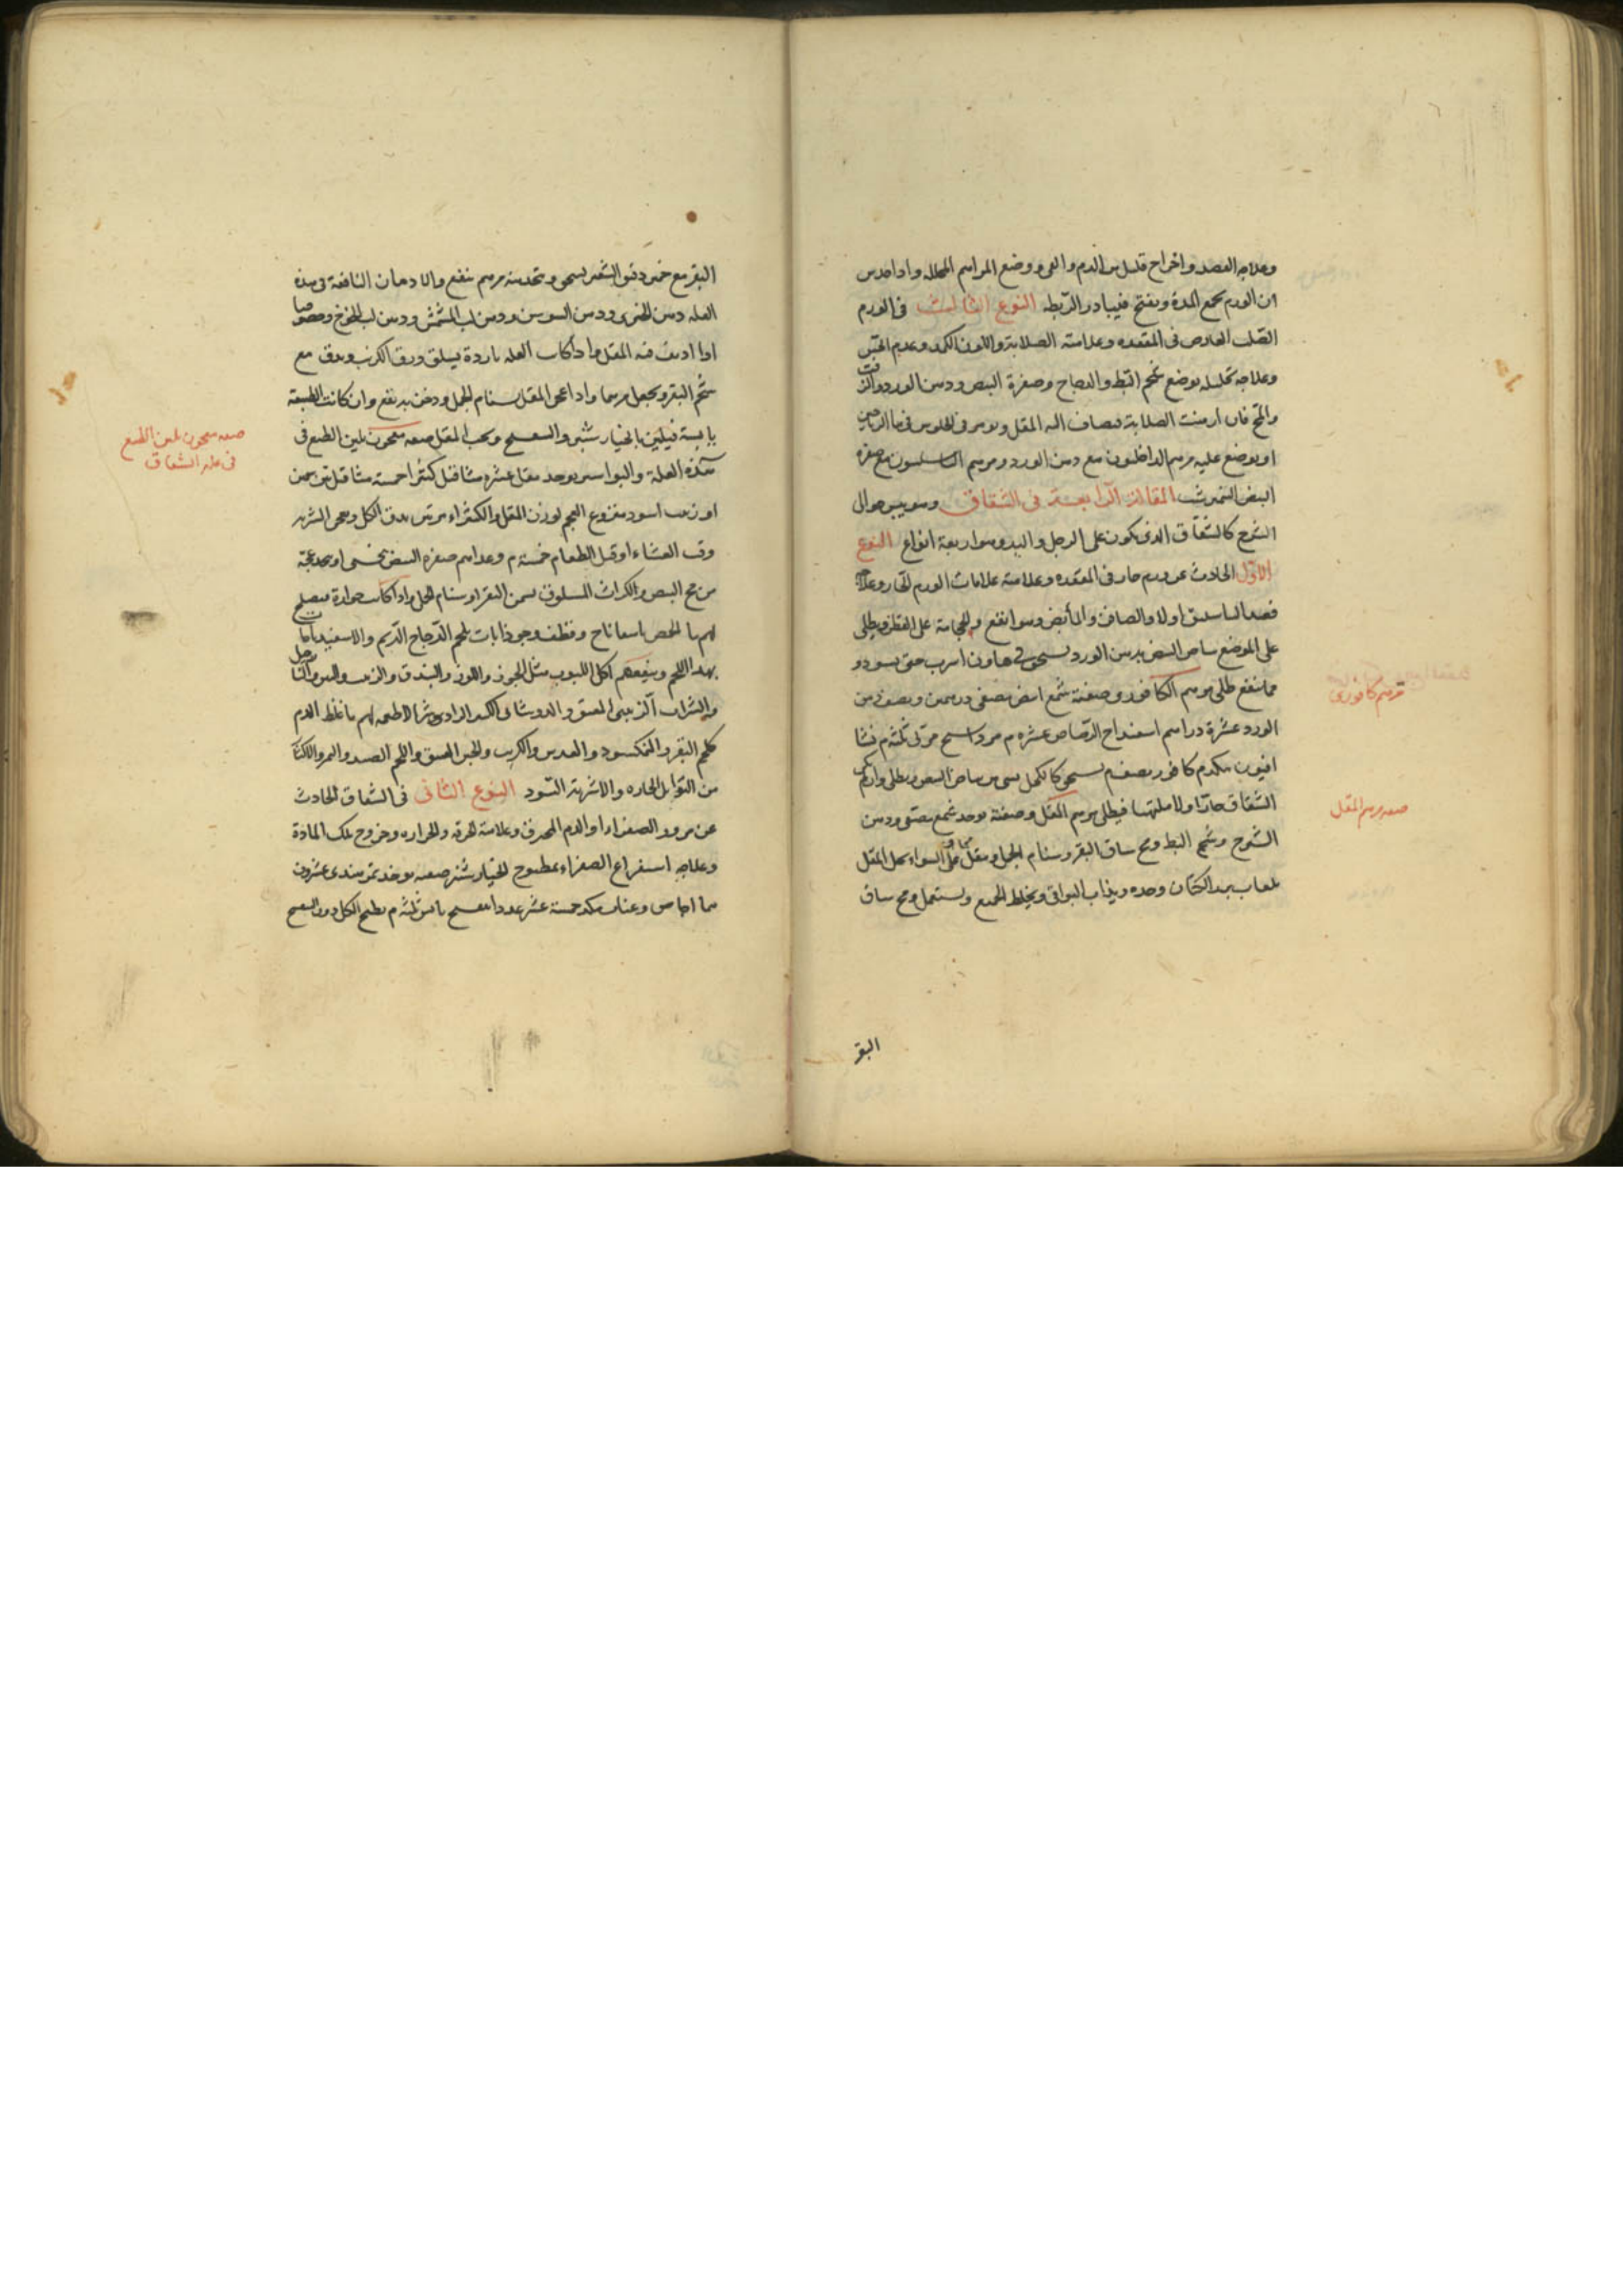 وعلاجه الفصد واخراج قليل من الدم والقى ووضع المراهم المحلله واذا حدس
ان الورم يجمع المدة وينفتح فيبادر الى بطه النوع الثالث فى الورم
الصلب العارض فى المقعده وعلامته الصلابة واللون الكمد وعدم
وعلاجه تحليله بوضع شحم البط والدجاج وصفرة البيض ودهن الورد والزفت
والمخ فان ازمنت الصلابة فيضاف اليه المقل ويؤمر فى الجلوس فى ماء الرياحين
او يوضع عليه مرهم الداخليون مع دهن الورد ومرهم الباسليون مع صفرة
البيض النيمرشت المقالة الرابعة فى الشقاق وهو يبس حوالى
الشرج كالشقاق الذى يكون على الرجل واليد وهو اربعة انواع النوع
الاول الحادث عن ورم حار فى المقعده وعلامته علامات الورم الحار وعلاجه
فصد الباسليق اولا والصافن والمأبض وهو انفع والحجامة على القطن ويطلى
على الموضع بياض البيض بدهن الورد يسحق فى هاون اسرب حتى يسود و
مما ينفع طلى مرهم الكافورى صفته شمع ابيض مصفى درهمين ونصف دهن
الورد عشرة دراهم اسفيداج الرصاص عشره م مرداسنج مربى ثلثه م نشا
افيون مكدم كافور نصف م يسحق كالكحل بشى من بياض البيض ويطلى وان لم يكن
الشقاق حارا ولا ملتهبا فيطلى مرهم المقل وصفته يوخذ شمع مصفى ودهن
الشيرج وشحم البط ومخ ساق البقر وسنام الجمل ومقل على السواء يحل المقل
بلعاب بزر الكتان وحده ويذاب البواقى ويخلط الجميع ويستعمل ومخ ساق
مرهم كافورى
صفه مرهم المقل
البقر
البقر مع خمير دقيق الشعير يسحق ويتخذ منه مرهم ينفع والادهان النافعة فى هذه
العله دهن الخيرى ودهن السوسن ودهن لب المشمش ودهن لب الخوخ وخصوصا
اذا اديف فيه المقل واذا كانت العله باردة يسلق ورق الكرنب ويدق مع
شحم البقر ويجعل مرهما واذا عجن المقل بسنام الجمل ودخن به نفع وان كانت الطبيعة
يابسة فيلين بالخيار شنبر والبنفسج وحب المقل صفه معجون يلين الطبع فى
هذه العلة والبواسير يوخذ مقل عشره مثاقيل كثيرا خمسة مثاقيل تين سمين
او زبيب اسود منزوع العجم بوزن المقل والكثيراء مرتين يدق الكل ويعجن الشربه
وقت العشاء او قبل الطعام خمسة م وغداهم صفرة البيض نخسى او يتخذ عجة
من مح البيض والكراث المسلوق بسمن البقر او سنام الجمل واذا كانت حرارة فيصلح
لهم ماء الحمص باسفاناخ وقطف وجوذابات بلحم الدجاج الدسم والاسفيدباجات
بهذا اللحم وينفعهم اكل اللبوب مثل الجوز واللوز والبندق والزبيب والتين والنارجيل
والشراب الزبيبى العتيق والدوشاب الكبير الرازى وشر الاطعمه لهم ما غلظ الدم
كلحم البقر والنمكسود والعدس والكرنب والجبن العتيق واللحم الصيد والتمر والاكثار
من التوابل الحاره والاشربة السود النوع الثانى فى الشقاق الحادث
عن مرور الصفراء او الدم المحرق وعلامته الحرقه والحراره وخروج تلك المادة
وعلاجه استفراغ الصفراء بمطبوخ الخيار شنبر صفته يوخذ تمر هندى عشرون
م اجاص وعناب مكد خمسة عشر عددا بنفسج يابس ثلثه م يطبخ الكل دون البنفسج
صفه معجون يلين الطبع
فى علة الشقاق